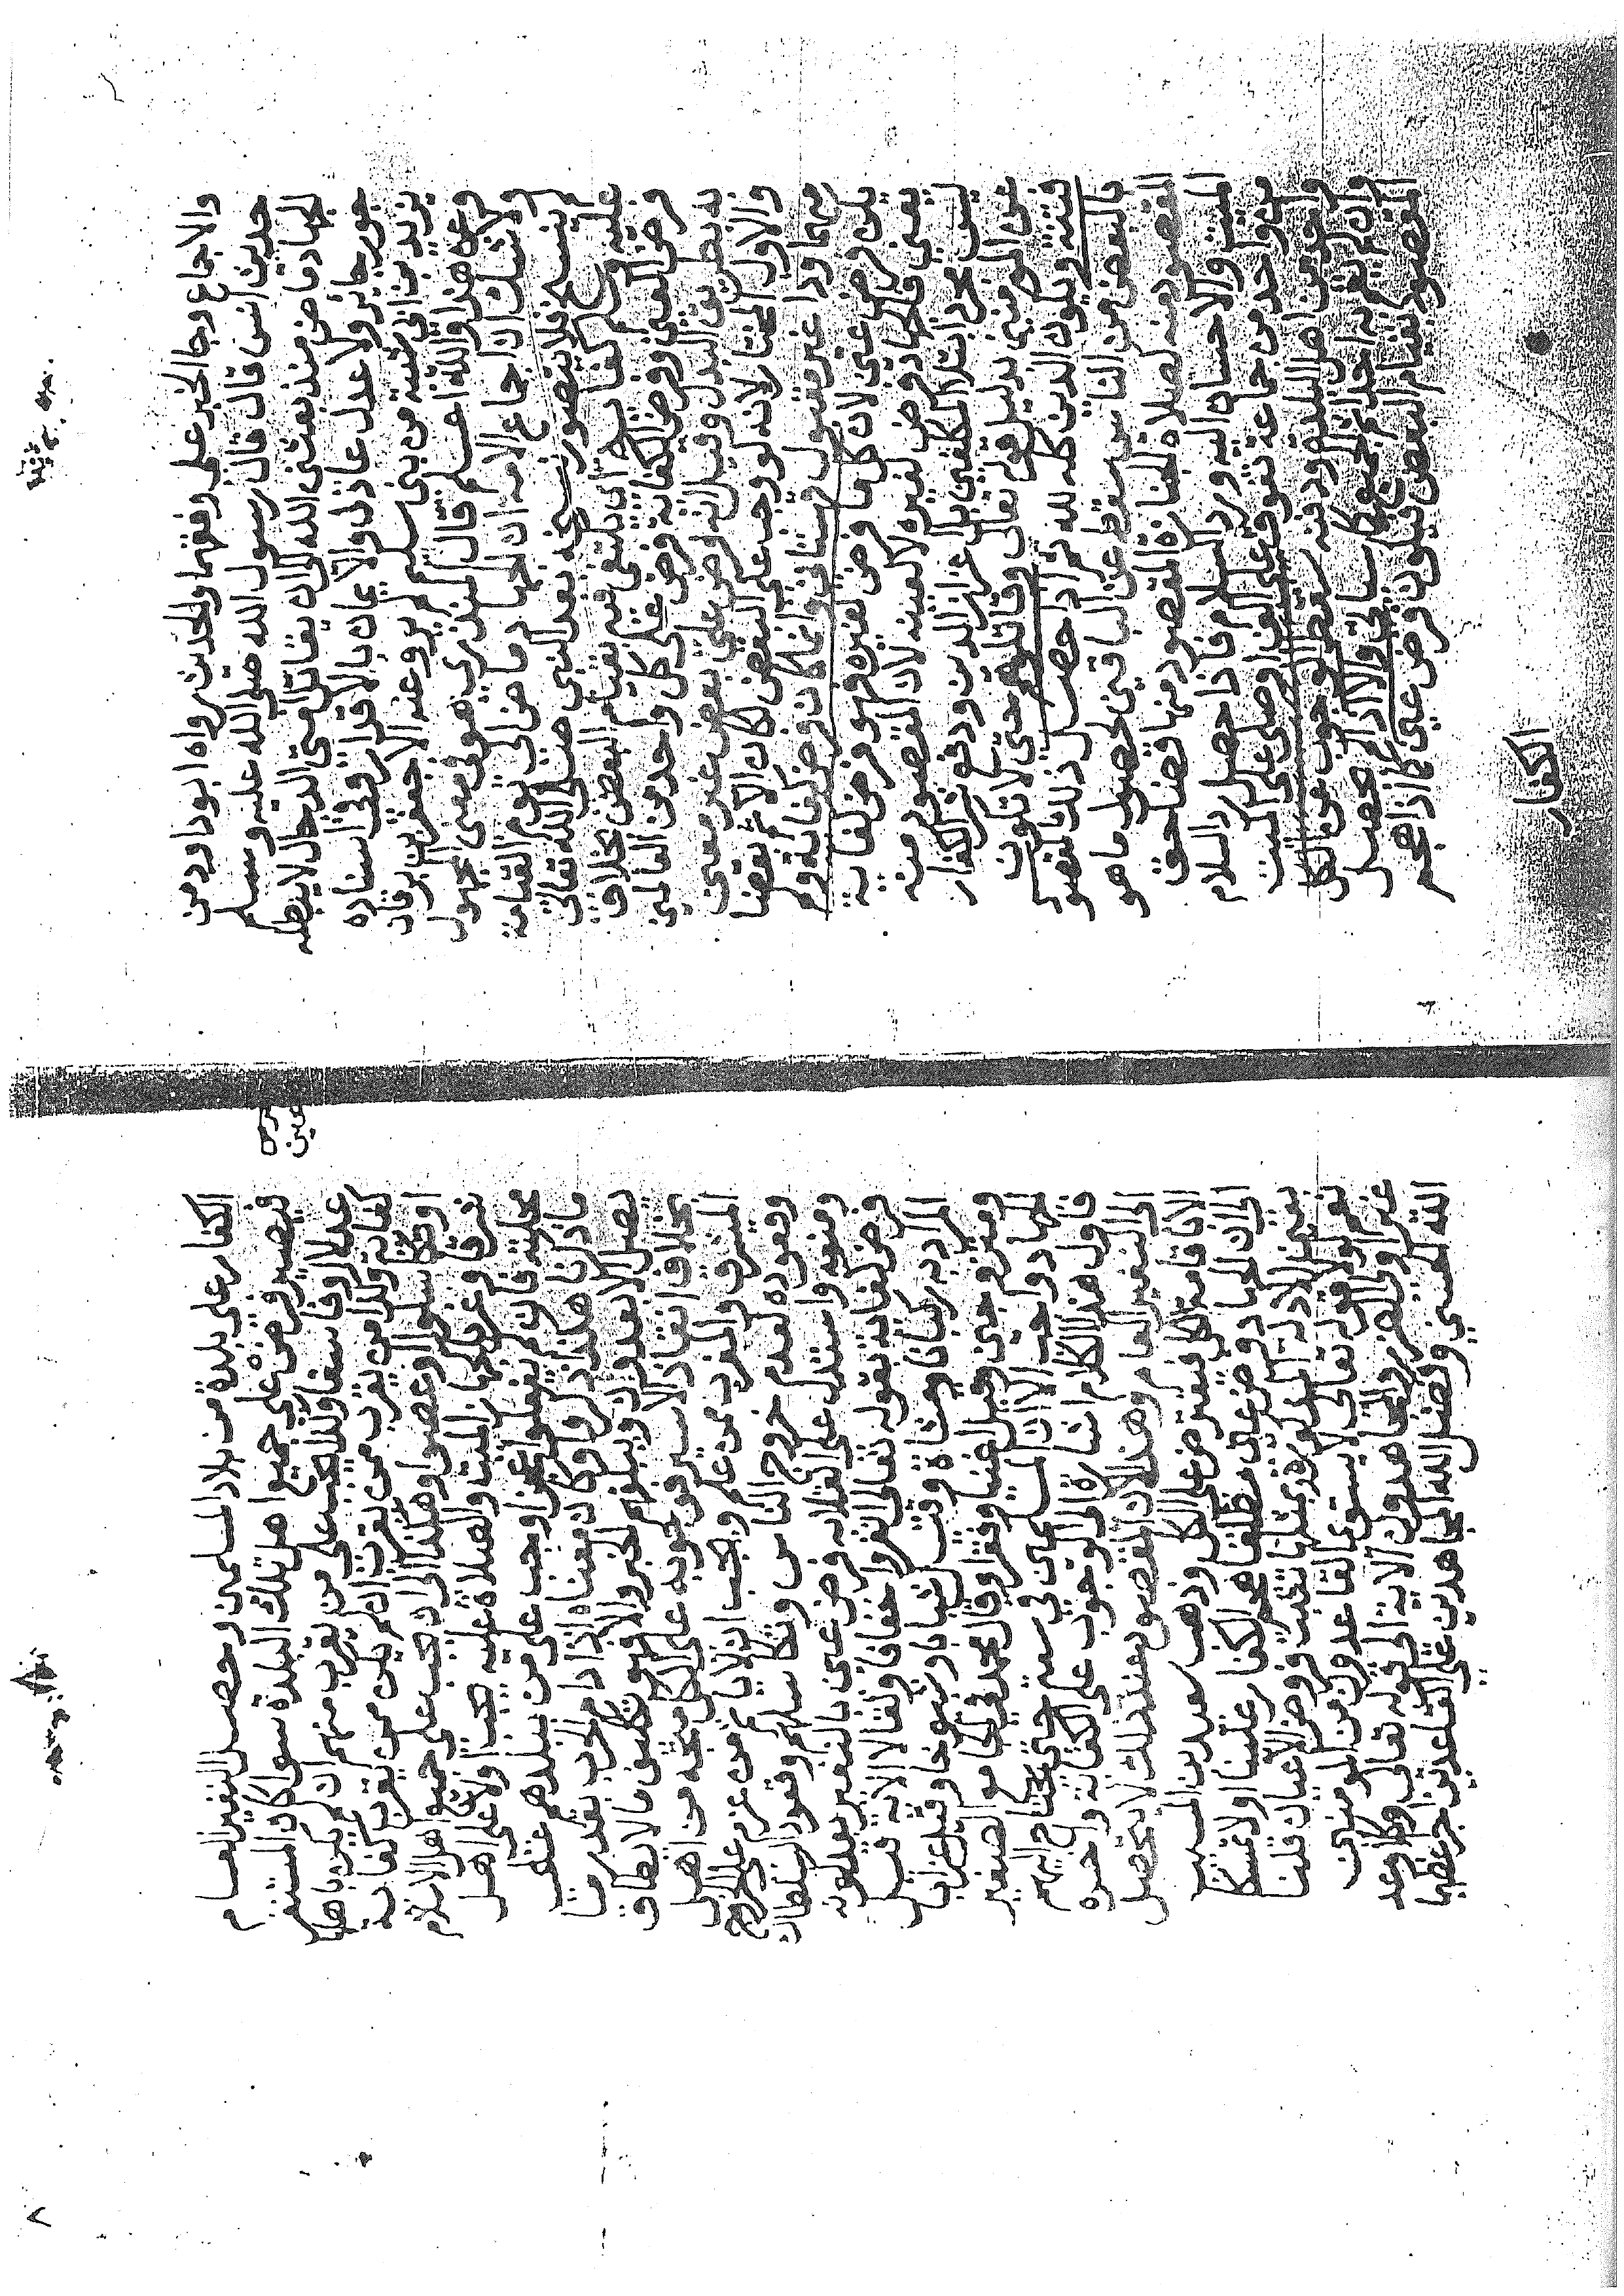 والاجماع وجا الخبر على وفقهما والحديث رواه ابو داود من
حديث انس قال قال رسول الله صلى الله عليه وسلم
الجهاد ماض منذ بعثنى الله الى ان يقاتل امتى الدجال لا يبطله
جور جائر ولا عدل عادل والايمان بالاقدار وفى اسناده
يزيد بن ابى شيبة من بنى سليم لم يرو عنه الا جعفر بن برقان
وعن هذا والله اعلم قال المنذرى هو فى معنى المجهول
ولا شك ان اجماع الامه ان الجهاد ماض الى يوم القيامة
لم ينسخ فلا يتصور نسخه بعد النبى صلى الله تعالى
عليه وسلم كفاية اى يكتفى فيه بقيام البعض بخلاف
فرض العين وفرض الكفاية فرض على كل واحد من العالمين
به بطريق البدل وقيل انه فرض على بعض غير معين
والاول المختار لانه لو وجب على البعض لكان الاثم بعضا
مبهما وذا غير مقبول وانما كان فرض كفاية ولم
يكن فرض عين لان كل ما فرض لغيره فهو فرض كفاية
يعنى فالجهاد فرض لغيره لا لعينه لان المقصود منه
ليس مجرد ابتلاء المكلفين بل اعزاز الدين ودفع شر الكفار
عن المومنين بدليل قوله تعالى وقاتلوهم حتى لا تكون
فتنة ويكون الدين كله لله فاذا حصل ذلك المقصود
بالبعض من الناس سقط عن الباقين لحصول ما هو
المقصود منه كصلاة الجنازة المقصود منها قضا حق
الميت والاحسان اليه ورد السلام فاذا حصل رد السلام
من واحد من جماعة وصلى على الميت
واحد من اهل البلدة ودفنه سقط الوجوب عن الكل
وان لم يقم به احد اثم الجميع كما سياتى والا اذا لم يحصل
المقصود بقيام البعض فيكون فرض عين كما اذا هجم
الكفار
الكفار على بلدة من بلاد المسلمين وحصل النفير العام
فيصير فرض عين على جميع اهل تلك البلدة سوا كان المستنفر
عدلا او فاسقا وكذا يجب على من يقرب منهم ان لم يكن باهلها
كفاية وكذا من يقرب ممن يقرب ان لم يكن ممن يقرب كفاية
او تكاسلوا او عصوا وهكذا الى ان يجب على جميع اهل الاسلام
شرقا وغربا كجهاز الميت والصلاة عليه يجب اولا على اهل
محلته فان لم يفعلوا عجزا وجب على من ببلدهم على
ما ذكرنا هكذا ذكروا وكان معناه اذا دام الحرب بقدر ما
يصل الابعدون ويبلغهم الخبر والا فهو تكليف ما لا يطاق
بخلاف انقاذ الاسير وجوبه على الكل متجه من اهل
المشرق والمغرب ممن علم ويجب ان لا ياثم من عزم على الخروج
وقعوده لعدم خروج الناس وتكاسلهم وقعود السلطان
ومنعه واستدل على انه فرض عين بالنفير بعد كونه
فرض كفاية بقوله تعالى انفروا خفافا وثقالا الاية قيل
المراد به ركبانا ومشاة وقيل شبابا وشيوخا وقيل عزابا
ومتزوجين وقيل اغنيا وفقرا وقال محمد فى الجامع الصغير
الجهاد واجب الا ان المسلمين فى سعة حتى يحتاج اليهم
فاول هذا الكلام اشارة الى الوجوب على الكفاية واخره
الى النفير العام وهذا لان المقصود عند ذلك لا يحصل
الا باقامة الكل فيفترض على الكل وذهب سعيد بن المسيب
الى ان الجهاد فرض عين مطلقا هجم الكفار علينا اولا تمسكا
بعين الادلة المذكورة اذ بمثلها تثبت فروض الاعيان قلنا
نعم لولا قوله تعالى لا يستوى القاعدون من المومنين
غير اولى الضرر والمجاهدون الاية الى قوله تعالى وكلا وعد
الله الحسنى وفضل الله المجاهدين على القاعدين اجرا عظيما